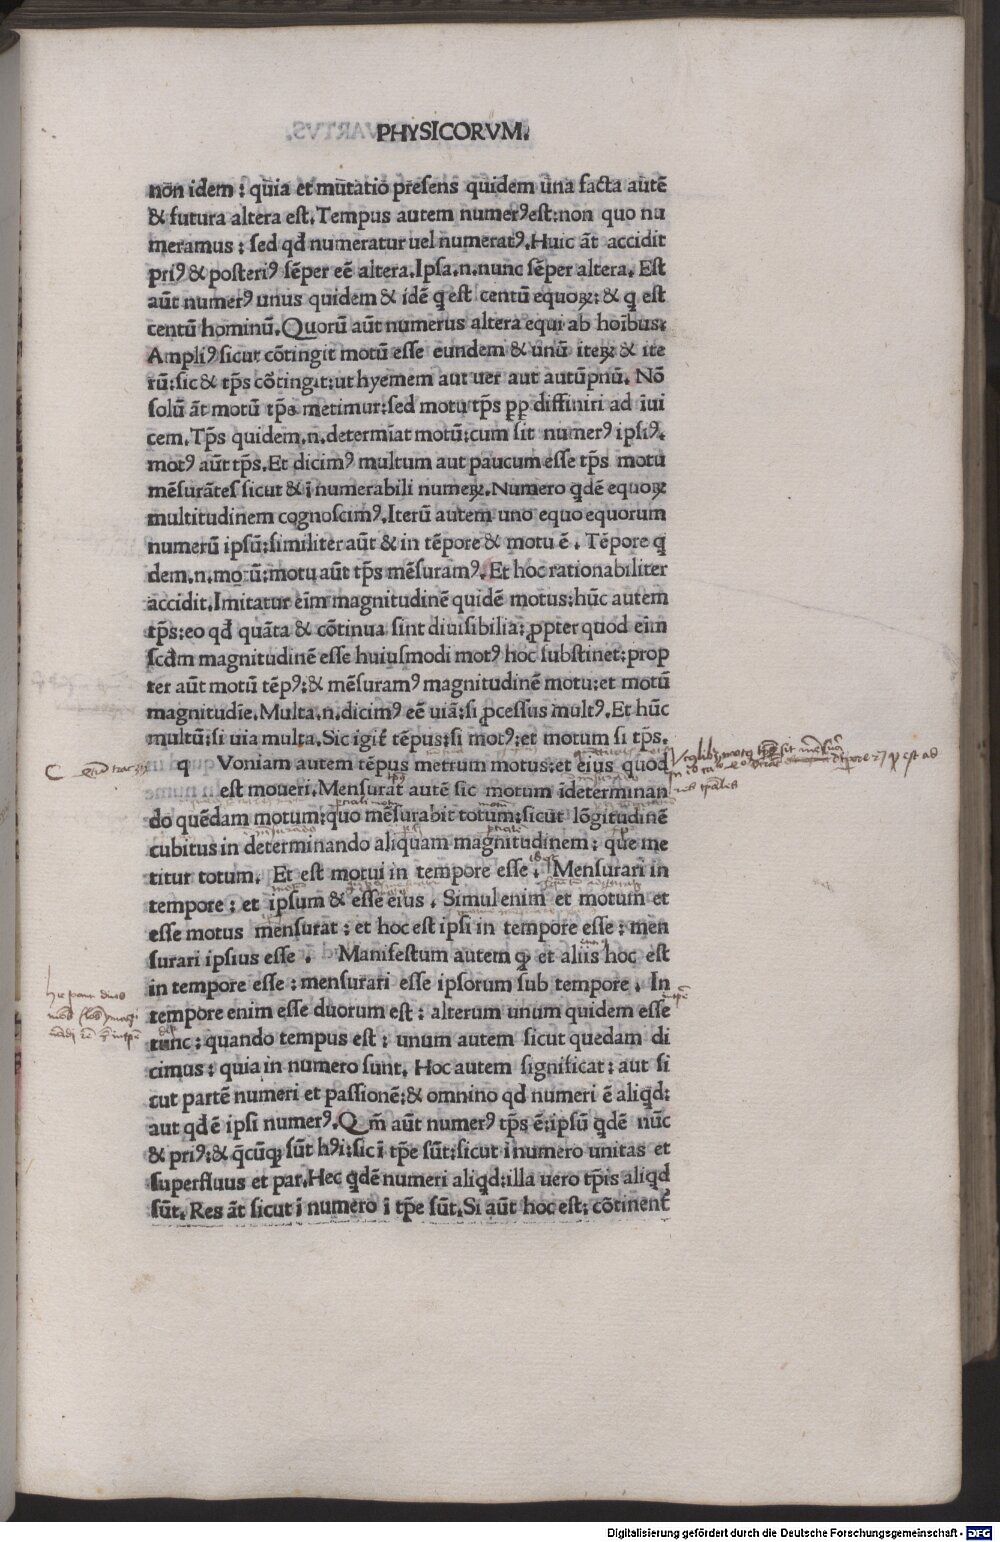 PHYSICORVM.
non idem : quia et mutatio presens quidem una facta autē
& futura altera est. Tempus autem numerꝰ est: non quo nu
meramus : sed qđ numeratur uel numeratꝰ. Huic āt accidit
priꝰ & posteriꝰ sēper eē altera. Ipsa .n. nunc sēper altera. Est
aūt numerꝰ unus quidem & idē q est centū equoꝝ: & q est
centū hominū. Quorū aūt numerus altera equi ab hoībus.
Ampliꝰ sicut cōtingit motū esse eundem & unū iteꝝ & ite
rū: sic & tp̄s cōtingit: ut hyemem aut uer aut autūpnū. Nō
solū āt motū tp̄e metimur: sed motu tp̄s ꝓꝑ diffiniri ad iui
cem. Tp̄s quidem .n. determīat motū: cum sit numerꝰ ipsiꝰ.
motꝰ aūt tp̄s. Et dicimꝰ multum aut paucum esse tp̄s motu
mēsurātes sicut & ī numerabili numeꝝ. Numero qdē equoꝝ
multitudinem cognoscimꝰ. Iterū autem uno equo equorum
numerū ipsū: similiter aūt & in tēpore & motu ē. Tēpore q
dem .n. motū: motu aūt tp̄s mēsuramꝰ. Et hoc rationabiliter
accidit. Imitatur eīm magnitudinē quidē motus: hūc autem
tp̄s: eo qđ quāta & cōtinua sint diuisibilia: ꝓpter quod eīm
scđm magnitudinē esse huiusmodi motꝰ hoc substinet: prop
ter aūt motū tēpꝰ: & mēsuramꝰ magnitudinē motu: et motū
magnitudīe. Multa .n. dicimꝰ eē uiā: si ꝓcessus multꝰ. Et hūc
multū: si uia multa. Sic igit̄ tēpus: si motꝰ: et motum si tp̄s.
q Voniam autem tēpus metrum motus: et eius quod
est moueri. Mensurat autē sic motum īdeterminan
do quēdam motum: quo mēsurabit totum: sicut lōgitudinē
cubitus in determinando aliquam magnitudinem : que me
titur totum. Et est motui in tempore esse . Mensurari in
tempore : et ipsum & esse eius . Simul enim et motum et
esse motus mensurat : et hoc est ipsi in tempore esse : men
surari ipsius esse . Manifestum autem ꝙ et aliis hoc est
in tempore esse : mensurari esse ipsorum sub tempore . In
tempore enim esse duorum est : alterum unum quidem esse
tunc : quando tempus est : unum autem sicut quedam di
cimus : quia in numero sunt . Hoc autem significat : aut si
cut partē numeri et passionē: & omnino qđ numeri ē aliqđ:
aut qđ ē ipsi numerꝰ. Qm̄ aūt numerꝰ tp̄s ē: ipsū qdē nūc
& priꝰ: & q̄cūqꝫ sūt hꝰi: sic ī tp̄e sūt: sicut ī numero unitas et
superfluus et par. Hec qdē numeri aliqđ: illa uero tp̄is aliqđ
sūt. Res āt sicut ī numero ī tp̄e sūt. Si aūt hoc est: cōtinent̄
Digitalisierung gefördert durch die Deutsche Forschungsgemeinschaft - DFG